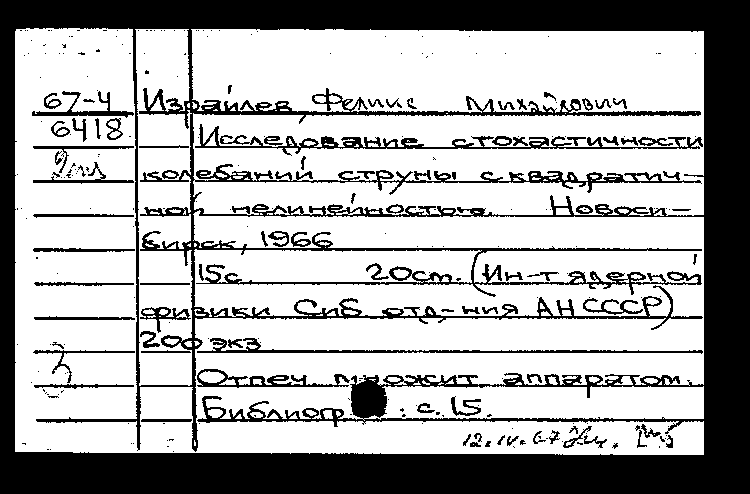 67-4 Израйлев, Феликс Михайлович
6418 Исследование стохастичности
колебаний струны с квадратич-
ной нелинейностью. Новоси-
бирск, 1966
15с. 20см. (Ин-т ядерной
физики Сиб отд-ния АН СССР)
200 экз
3 Отпеч. множит. аппаратом.
Библиогр : с. 15.
12.IV.67